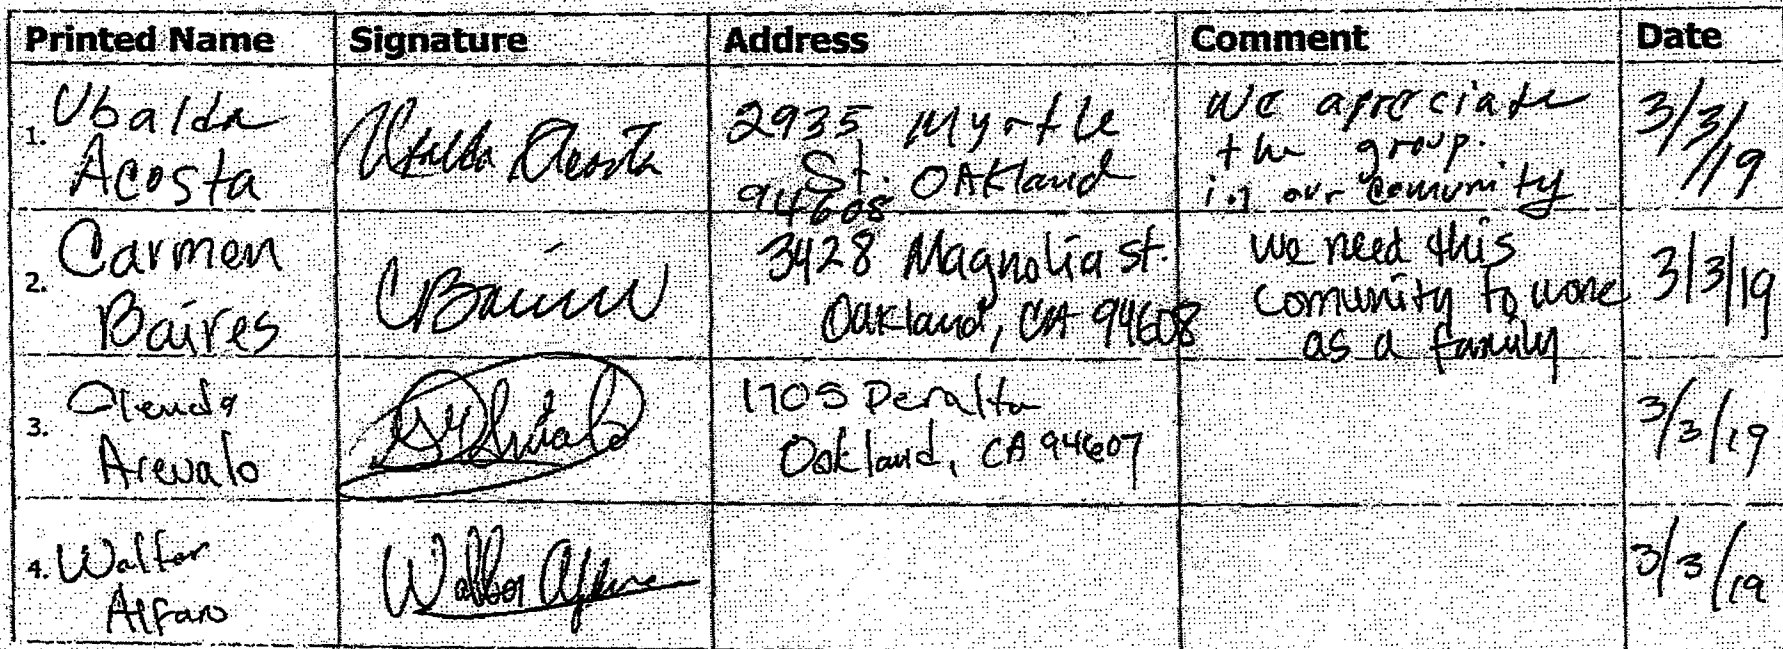 Printed Name Signature Address Comment Date
1. Ubalda
Acosta
Ubalda Acosta
2935 Myrtle
St. Oakland
94608
we apreciate
the group.
in our comunity
3/3/19
2. Carmen
Baires
CBaires
3428 Magnolia St.
Oakland, CA 94608
We need this
comunity to work
as a family
3/3/19
3. Glenda
Arevalo
1705 Peralta
Oakland, CA 94607
3/3/19
4. Walter
Alfaro
Walter Alfaro
3/3/19